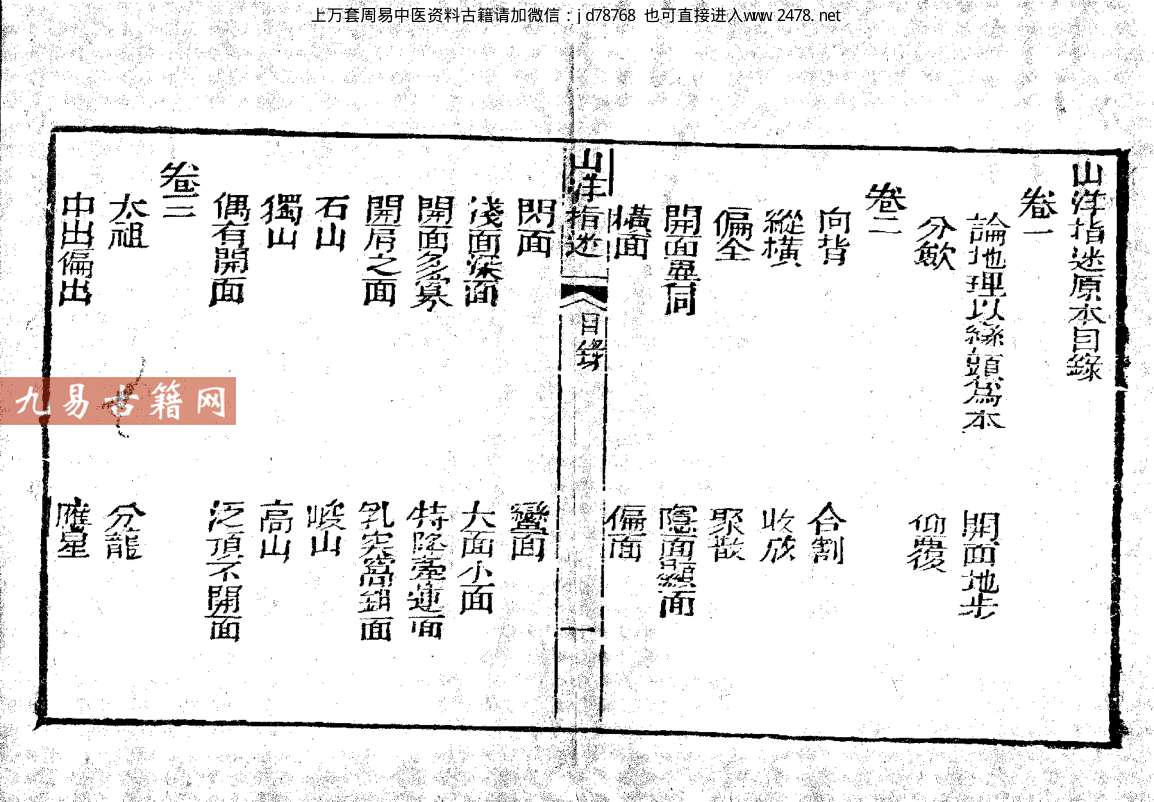 上万套周易中医资料古籍请加微信：jd78768 也可直接进入www.2478.net
山洋指迷原本目錄
卷一
論地理以巒頭爲本 開面地步
分歛 仰覆
卷二
向背 合割
縱橫 收放
偏全 聚散
開面異同 隱面顯面
橫面 偏面
山洋指迷 目錄 一
閃面 蠻面
淺面深面 大面小面
開面多寡 特降牽連面
開肩之面 乳突窩鉗面
石山 峻山
獨山 高山
偶有開面 泛頂不開面
卷三
太祖 分龍
中出偏出 應星
九易古籍网